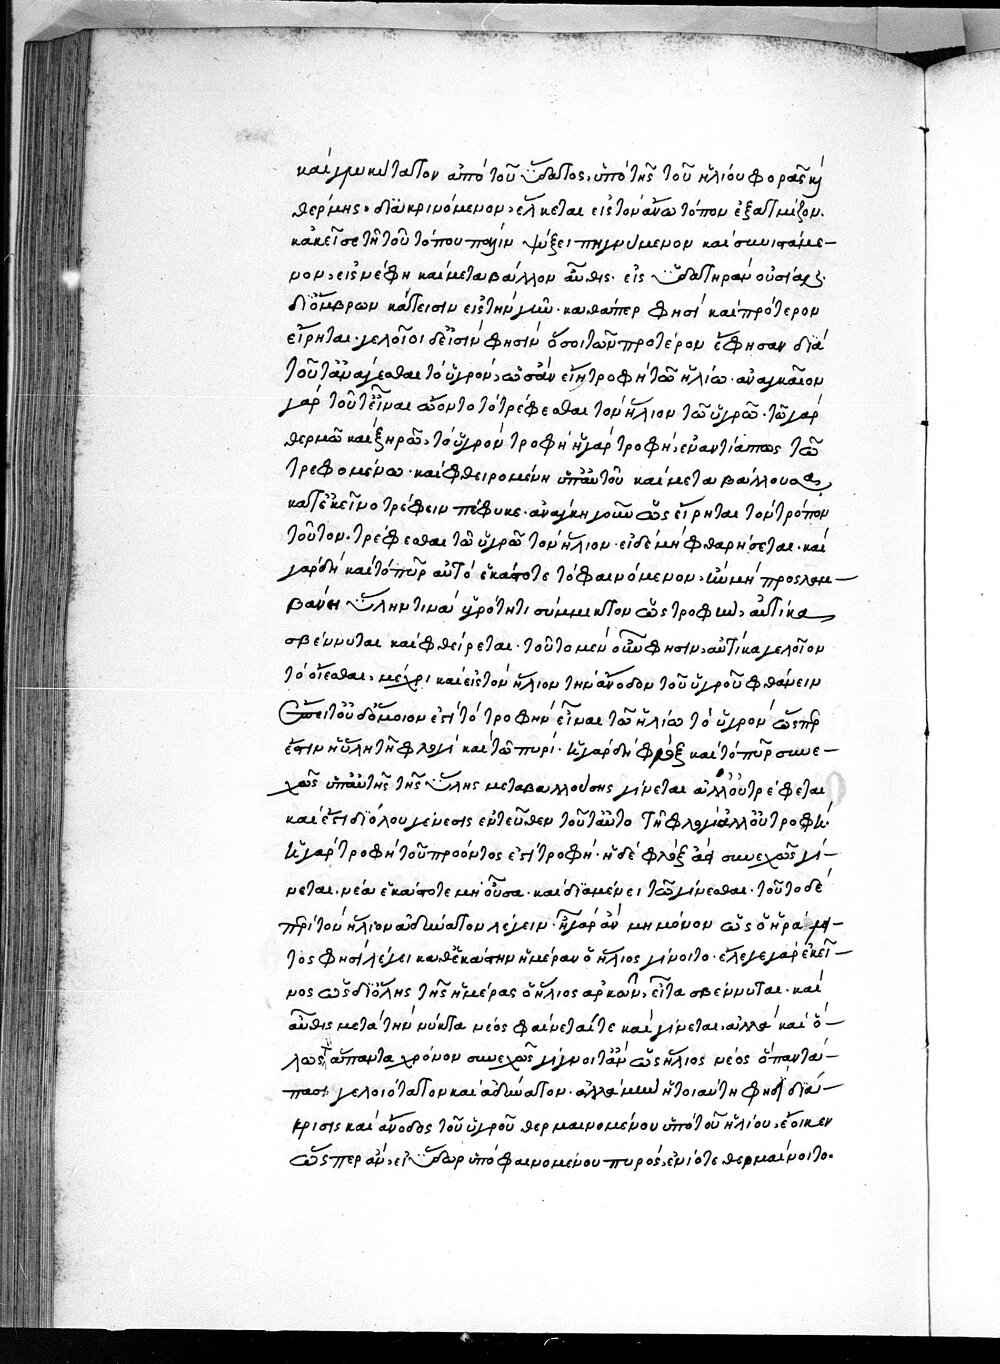 καὶ γλυκύτατον ἀπὸ τοῦ ὕδατος, ὑπὸ τῆς τοῦ ἡλίου φορᾶς κ(αὶ)
θέρμης, διακρινόμενον, ἕλκεται εἰς τὸν ἄνω τόπον ἐξατμίζον.
κἀκεῖσε τῇ τοῦ τόπου πάλιν ψύξει πηγνύμενον καὶ συνιστάμε-
νον, εἰς νέφη καὶ μεταβάλλον αὖθις εἰς ὑδατηρὰν οὐσίαν,
δι' ὄμβρων κάτεισιν εἰς τὴν γῆν. καθάπερ φησὶ καὶ πρότερον
εἴρηται. γελοῖοι δ' εἰσὶν φησὶν ὅσοι τῶν προτέρον ἔφησαν διὰ
τοῦτ' ἀνάγεσθαι τὸ ὑγρόν, ὡς ἂν εἴη τροφὴ τῶ ἡλίω. ἀναγκαῖον
γὰρ τοῦτ' εἶναι ὤοντο τὸ τρέφεσθαι τὸν ἥλιον τῶ ὑγρῶ. τῶ γὰρ
θερμῶ καὶ ξηρῶ, τὸ ὑγρὸν τροφὴ· ἡ γὰρ τροφὴ, ἐναντία πως τῶ
τρεφομένω. καὶ φθειρομένη ὑπ' αὐτοῦ καὶ μεταβάλλουσα,
κατ' ἐκεῖνο τρέφειν πέφυκε. ἀνάγκη γοῦν ὡς εἴρηται τὸν τρόπον
τοῦτον. τρέφεσθαι τῶ ὑγρῶ τὸν ἥλιον. εἰ δὲ μὴ φθαρήσεται. καὶ
γὰρ δὴ καὶ τὸ πῦρ αὐτὸ ἑκάστοτε τὸ φαινόμενον, ἢν μὴ προσλαμ-
βάνη ὕλην τινὰ ὑγρότητι σύμμικτον ὡς τροφὴν, αὐτίκα
σβέννυται καὶ φθείρεται. τοῦτο μὲν οὖν φησιν, αὐτίκα γελοῖον
τὸ οἴεσθαι, μέχρι καὶ εἰς τὸν ἥλιον τὴν ἄνοδον τοῦ ὑγροῦ φθάνειν
ἔπειτ' οὐδ' ὅμοιον ἐστὶ τὸ τροφὴν εἶναι τῶ ἡλίω τὸ ὑγρὸν ὥσπερ
ἐστιν ἡ ὕλη τῆ φλογὶ καὶ τῶ πυρί. ἡ γὰρ δὴ φλὸξ καὶ τὸ πῦρ συνε-
χῶς ὑπ' αὐτῆς τῆς ὕλης μεταβαλλούσης γίνεται ἀλλ' οὐ τρέφεται
καὶ ἔστι διόλου γένεσις ἐντεῦθεν τοῦτ' αὐτὸ τῆ φλογὶ ἀλλ' οὐ τροφὴ.
ἡ γὰρ τροφὴ τοῦ προόντος ἐστὶ τροφή. ἡ δὲ φλὸξ ἀεὶ συνεχῶς γί-
νεται, νέα ἑκάστοτε μὴ οὖσα. καὶ διαμένει τῶ γίνεσθαι. τοῦτο δὲ
περὶ τὸν ἥλιον ἀδύνατον λέγειν. ἦ γὰρ ἂν μὴ μόνον ὡς ὁ ἡράκλει-
τός φησι λέγει καθ' ἑκάστην ἡμέραν ὁ ἥλιος γίνοιτο. ἔλεγε γὰρ ἐκεῖ-
νος ὡς δι' ὅλης τῆς ἡμέρας ὁ ἥλιος ἀρκῶν, εἶτα σβέννυται. καὶ
αὖθις μετὰ τὴν νύκτα νέος φαίνεταί τε καὶ γίνεται, ἀλλὰ καὶ ὅ-
λως ἅπαντα χρόνον συνεχῶς γίγνοιτ' ἂν ὡς ἥλιος νέος ὃ παντά-
πασι γελοιότατον καὶ ἀδύνατον. ἀλλὰ μὴν ἡ τοιαύτη φησὶ διά-
κρισις καὶ ἄνοδος τοῦ ὑγροῦ θερμαινομένου ὑπὸ τοῦ ἡλίου, ἔοικεν
ὥσπερ ἂν, εἰ ὕδωρ ὑπὸ φαινομένου πυρός, ἐνίοτε θερμαίνοιτο.